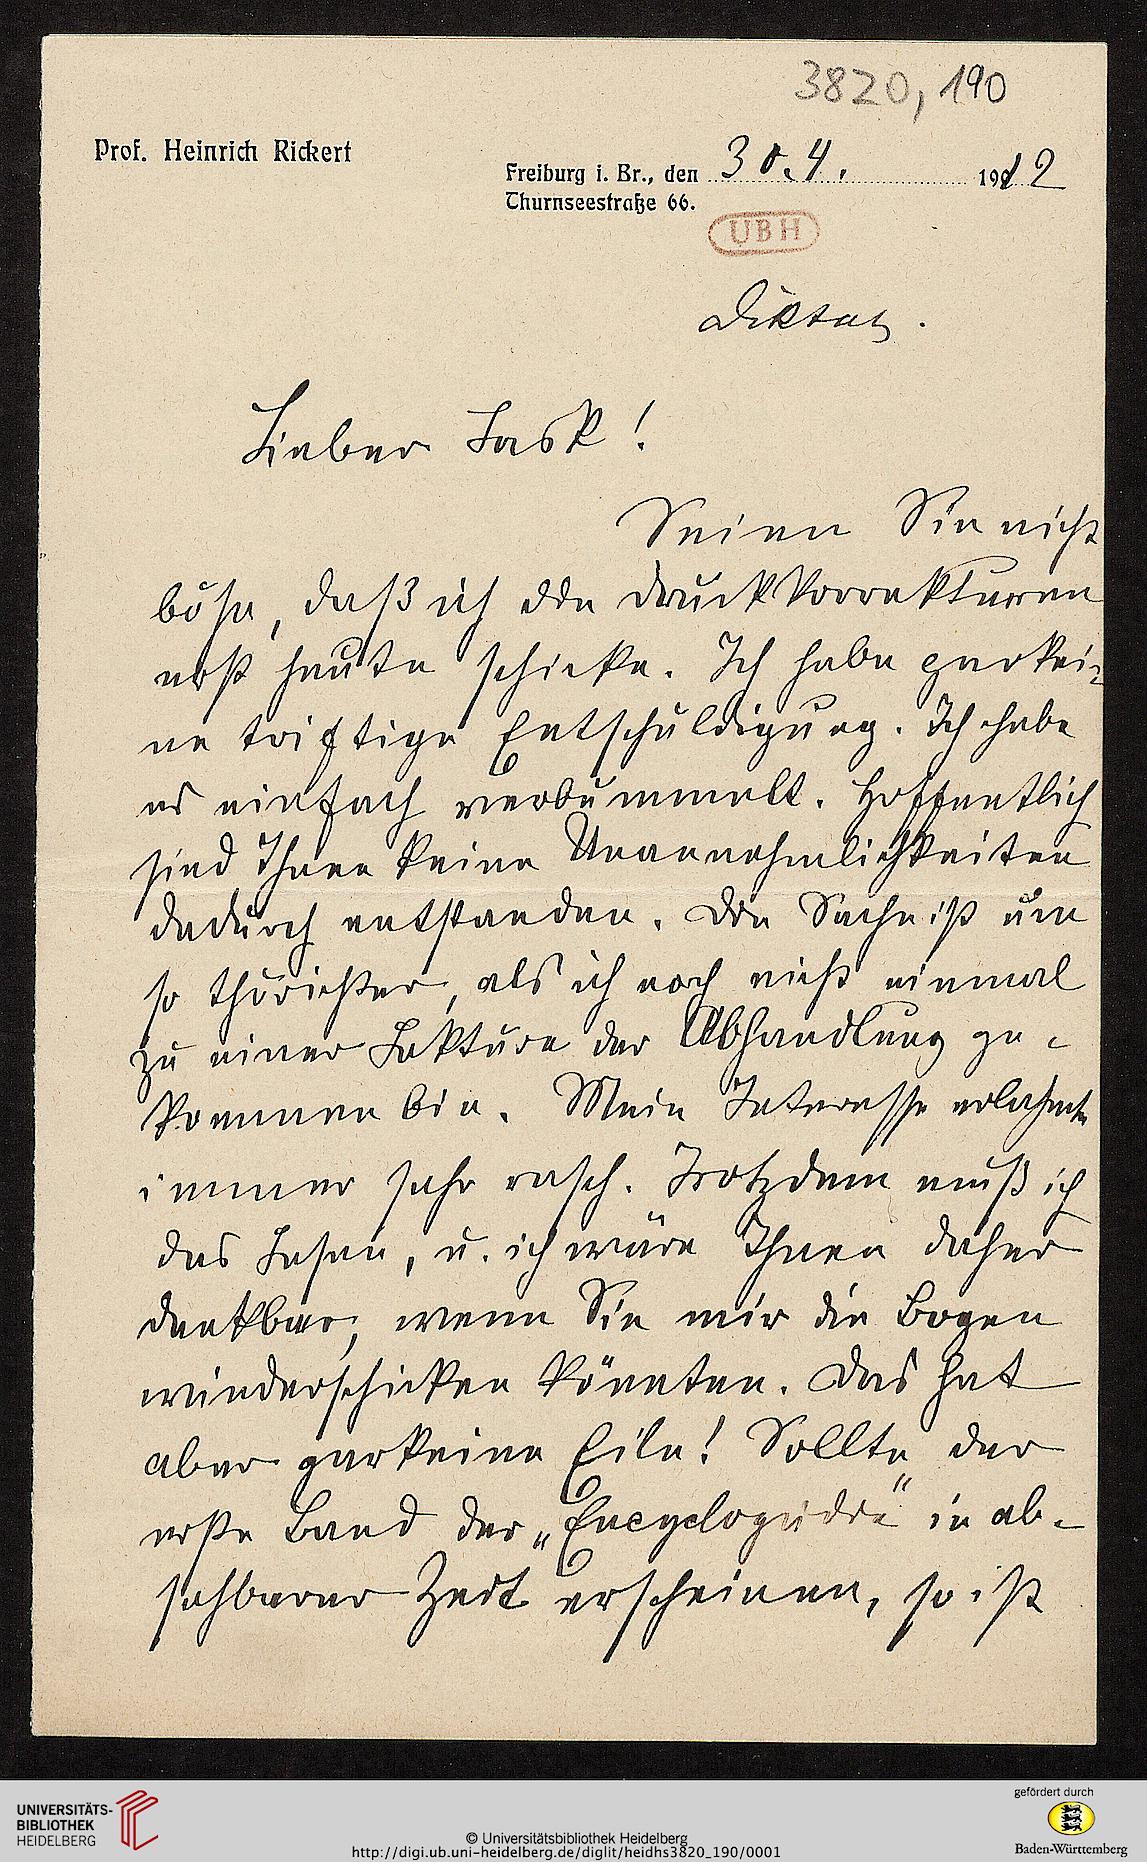 3820, 190
Prof. Heinrich Rickert
Freiburg i. Br., den 30. 4. 1912
Thurnseestraße 66.
UBH
Diktat.
Lieber Lask!
Seien Sie nicht
böse, daß ich die Druckkorrekturen
erst heute schicke. Ich habe gar kei-
ne triftige Entschuldigung. Ich habe
es einfach verbummelt. Hoffentlich
sind Ihnen keine Unannehmlichkeiten
dadurch entstanden. Die Sache ist um
so thörichter, als ich noch nicht einmal
zu einer Lektüre der Abhandlung ge-
kommen bin. Mein Interesse erlahmte
immer sehr rasch. Trotzdem muß ich
das Lesen, u. ich wäre Ihnen daher
dankbar, wenn Sie mir die Bogen
wiederschicken könnten. Das hat
aber gar keine Eile! Sollte der
erste Band der „Encyclopädie" in ab-
sehbarer Zeit erscheinen, so ist
UNIVERSITÄTS-
BIBLIOTHEK
HEIDELBERG
© Universitätsbibliothek Heidelberg
http://digi.ub.uni-heidelberg.de/diglit/heidhs3820_190/0001
gefördert durch
Baden-Württemberg